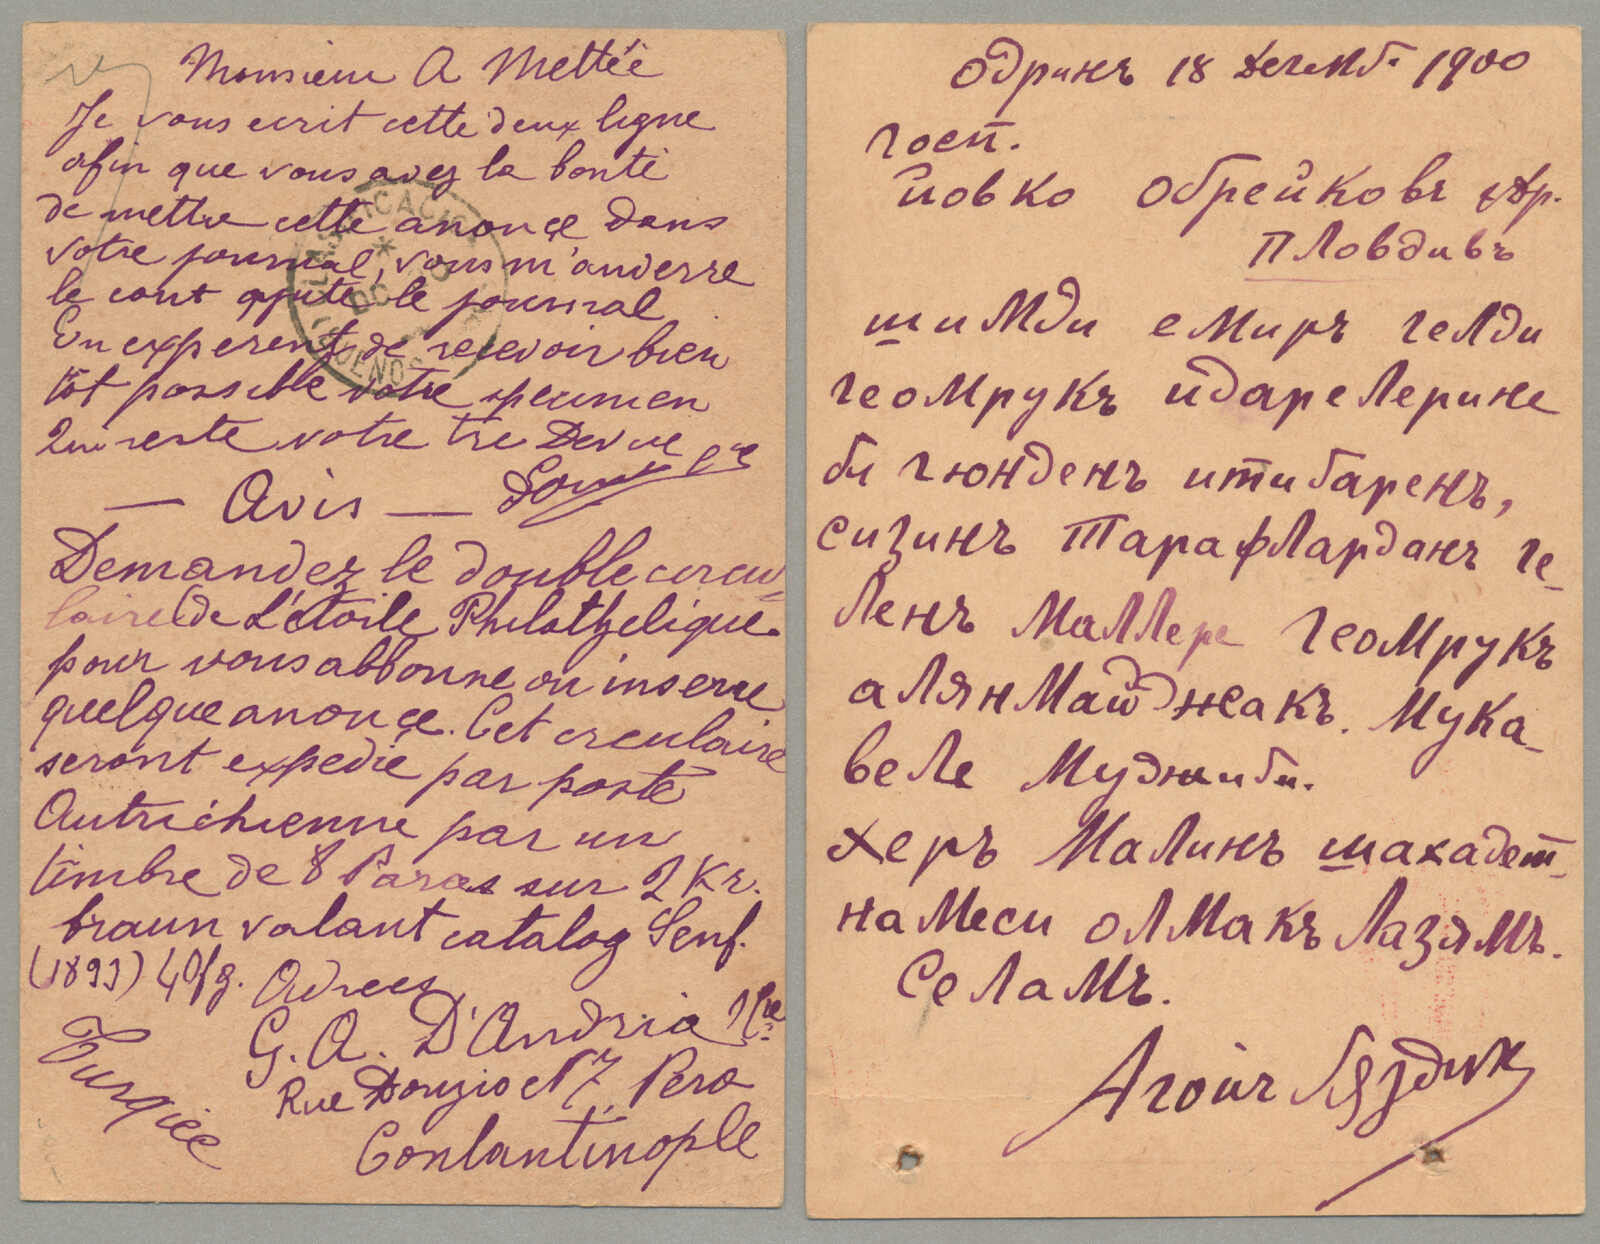 Monsieur A Mettéé
Je vous ecrit cette deux ligne
afin que vous avez la bonté
de mettre cette anonçe dans
votre journal, vous m'anverre
le cont ajute le journal
En experent de recevoir bien
tot possible votre specimen
Qui reste votre tre Devue
— Avis —
Demandez le double circu
laire de L'étoile Philathelique
pour vous abbonne ou inserre
quelque anonçe. Cet creulaire
seront expedie par poste
Autrichienne par un
timbre de 8 Paras sur 2 Kr.
braun valant catalog Senf.
(1899) 40 fg. Adrees
G. A. D'Andria
Rue Douzio No 7 Pera
Conlantinople
Turquiee
BUENOS
одринъ 18 Декемб. 1900
госп.
Иовко Обрейковъ
Пловдивъ
шимди емиръ гелди
геомрукъ идарелерине
бу гюнденъ итибаренъ,
сизинъ тарафларданъ ге-
ленъ маллере геомрукъ
алянмайджакъ. Мука-
веле муджиби.
херъ малинъ шахадет-
намеси олмакъ лазямъ.
Селамъ.
Агопъ